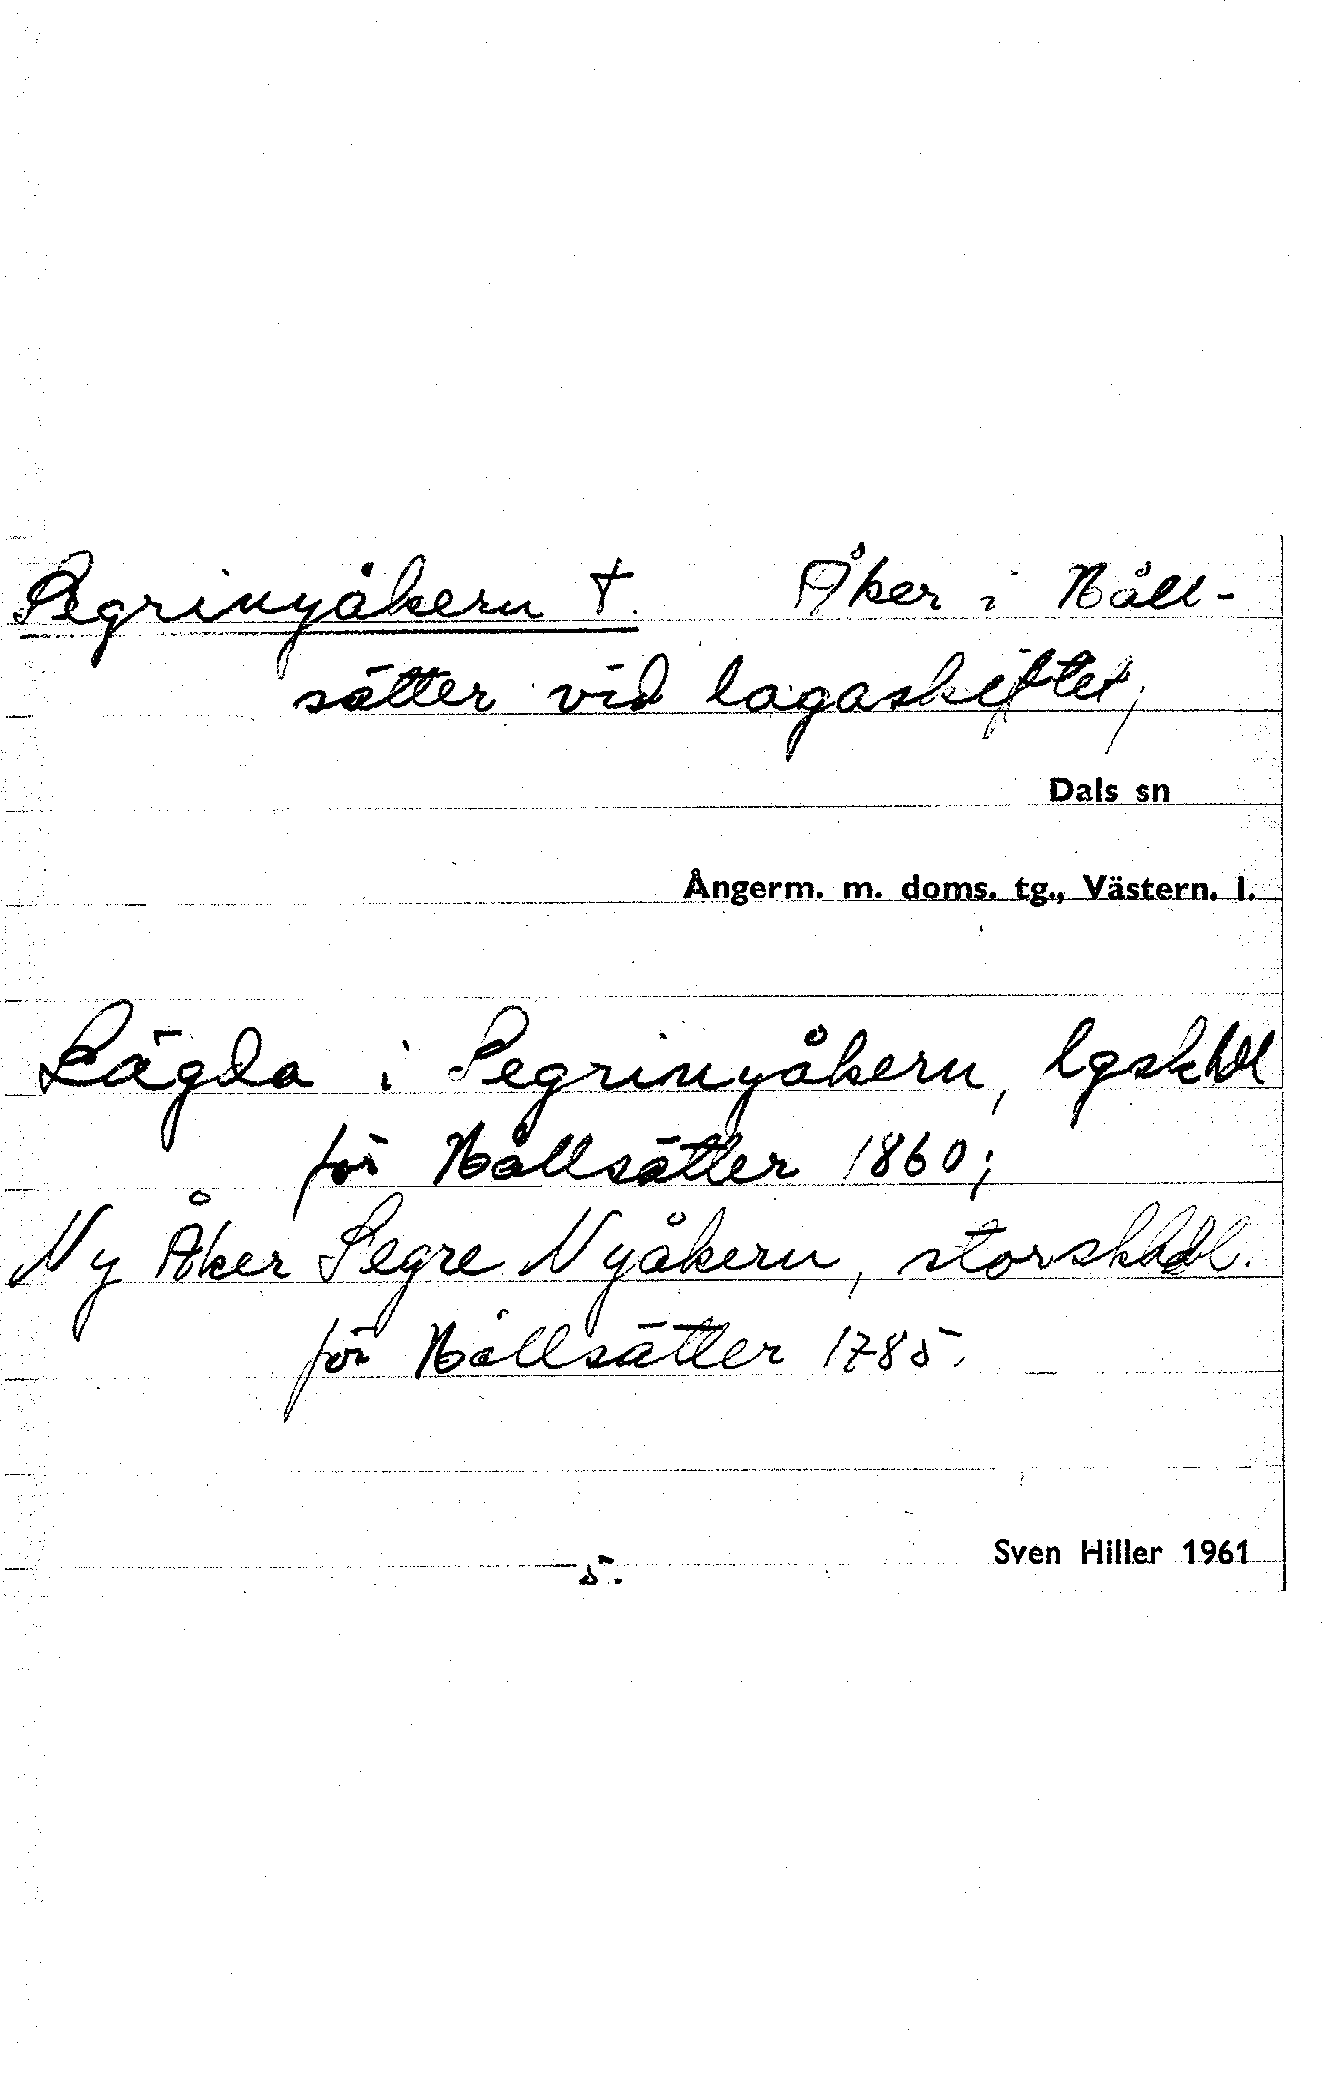 Segrinyåkern †. Åker i Håll-
sätter vid lagaskiftet,
Dals sn
Ångerm. m. doms. tg., Västern. l.
Lägda i Segrinyåkern, lgskhdl
för Hållsätter 1860;
Ny Åker Segre Nyåkern, storskhdl.
för Hållsätter 1785.
5. Sven Hiller 1961